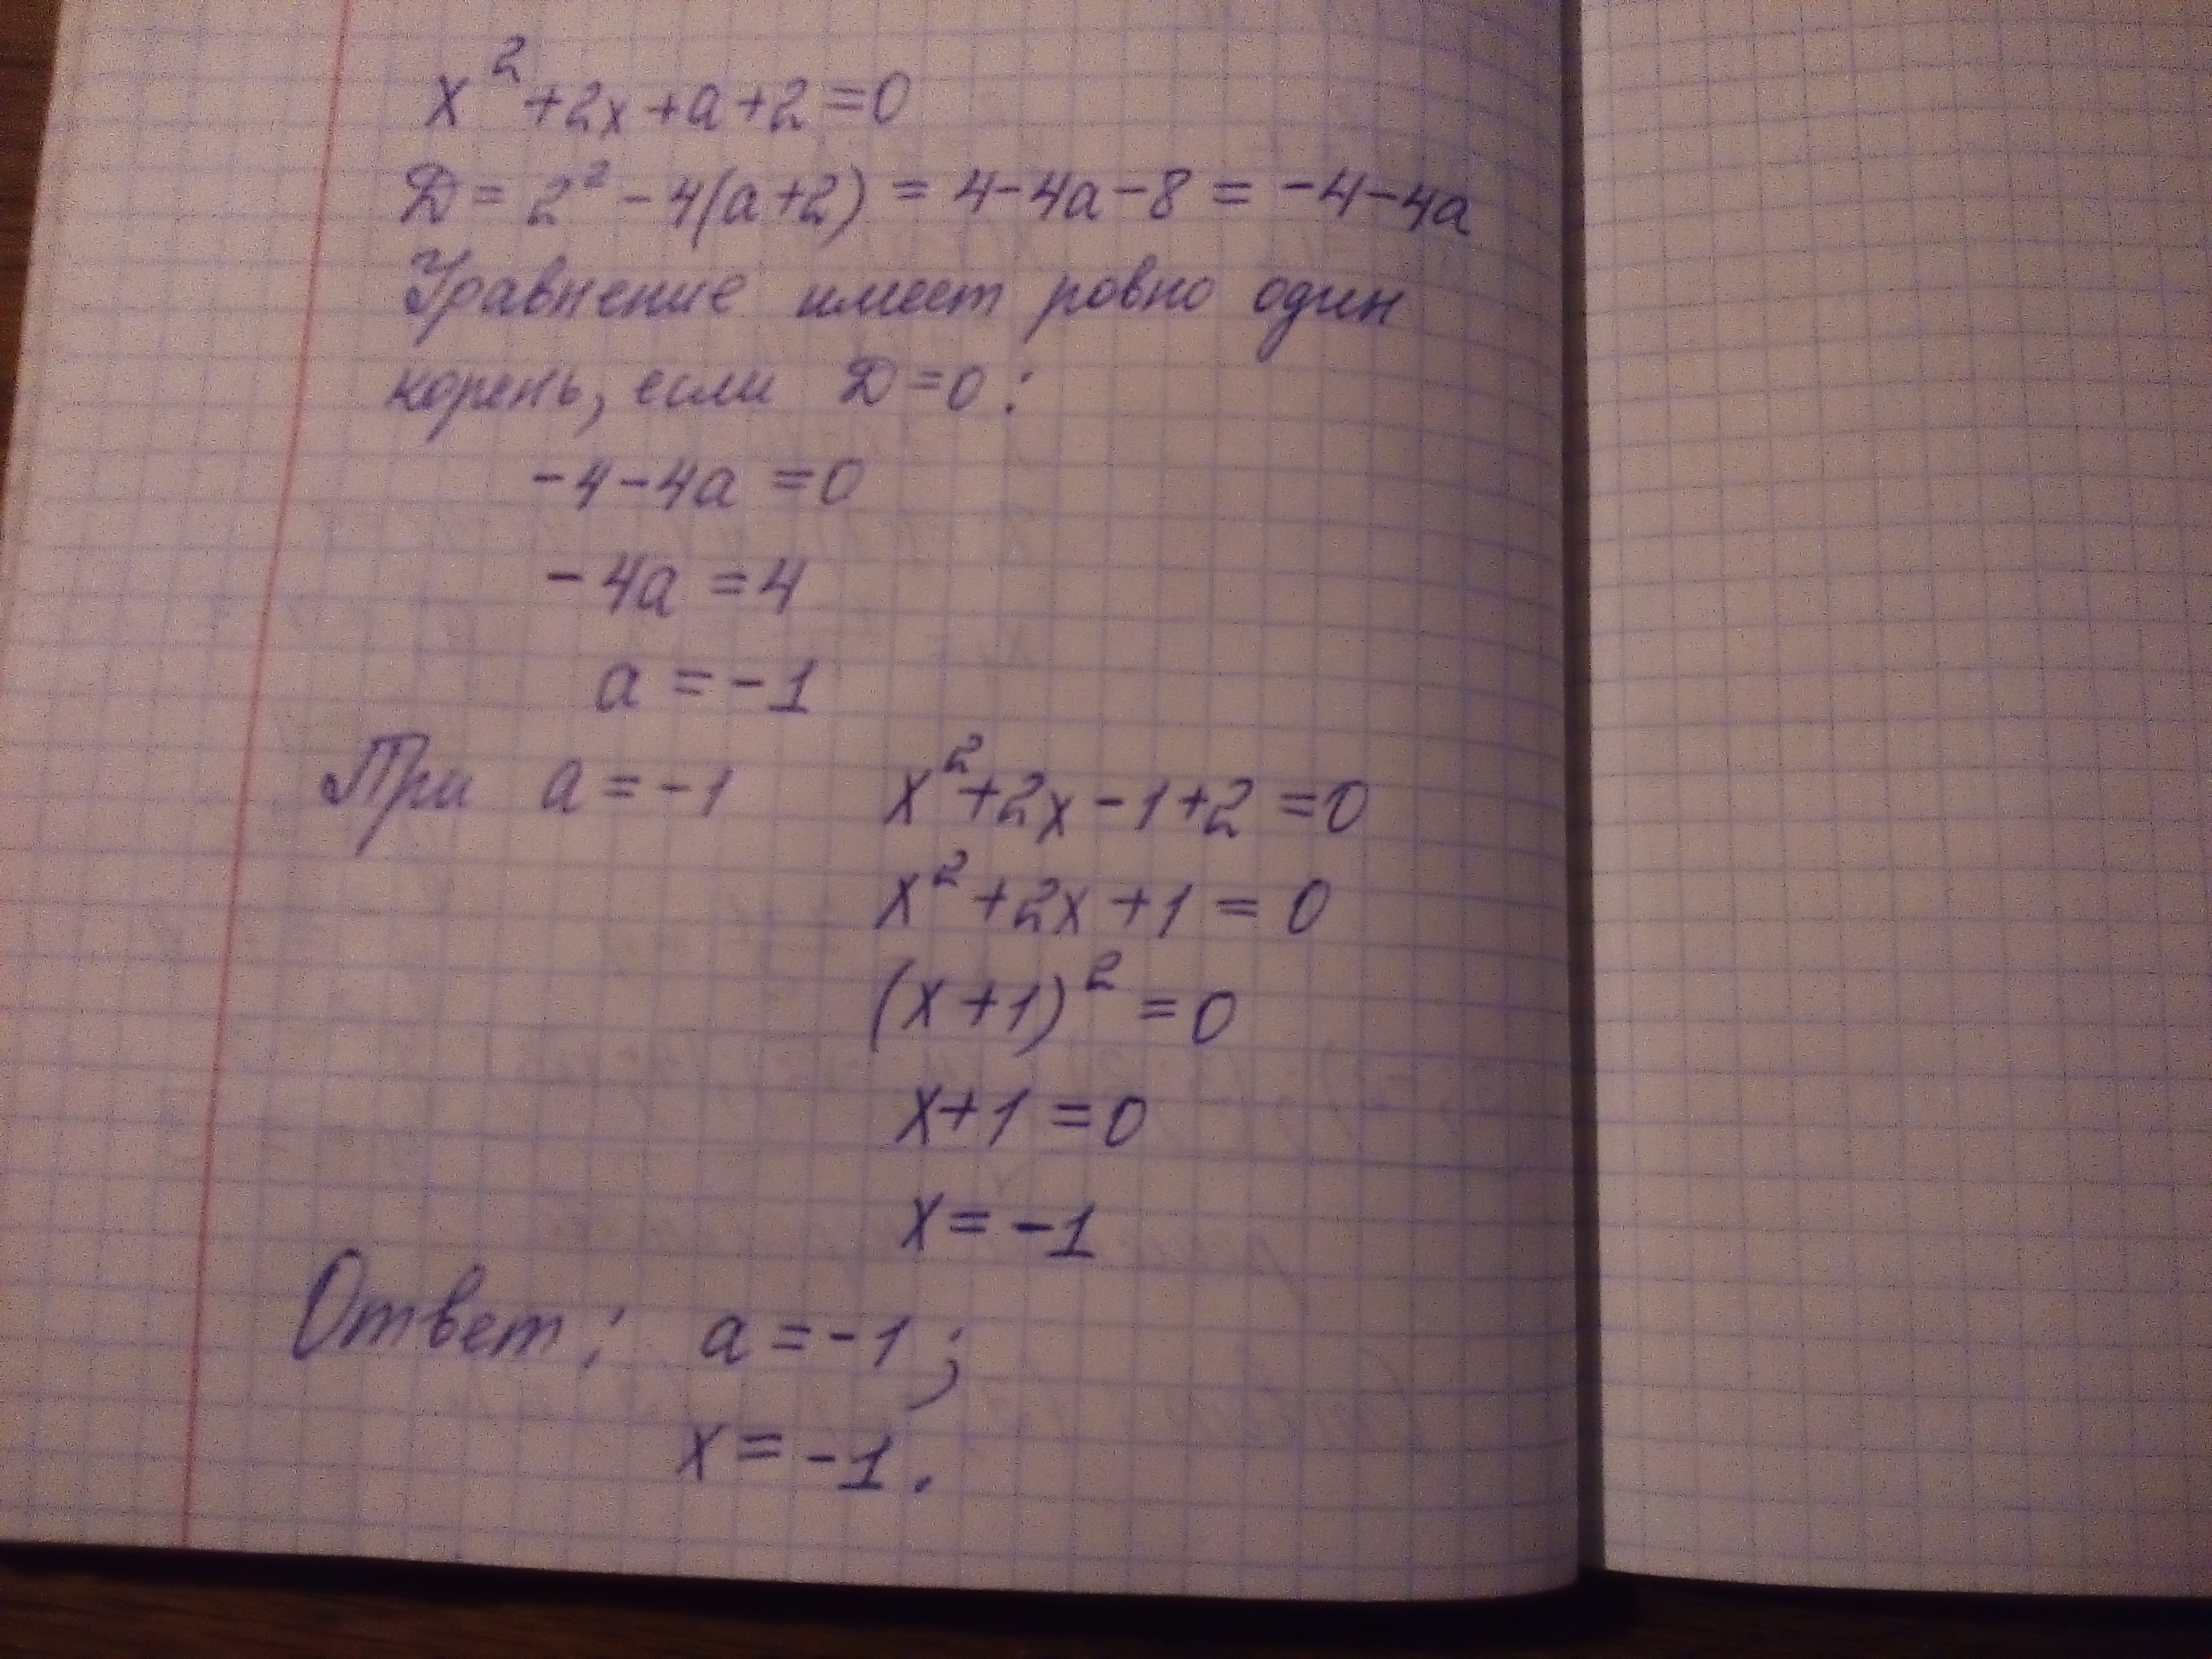 x²+2x+a+2=0
D=2²-4(a+2)=4-4a-8=-4-4a
Уравнение имеет ровно один
корень, если D=0:
-4-4a=0
-4a=4
a=-1
При a=-1 x²+2x-1+2=0
x²+2x+1=0
(x+1)²=0
x+1=0
x=-1
Ответ: a=-1;
x=-1.